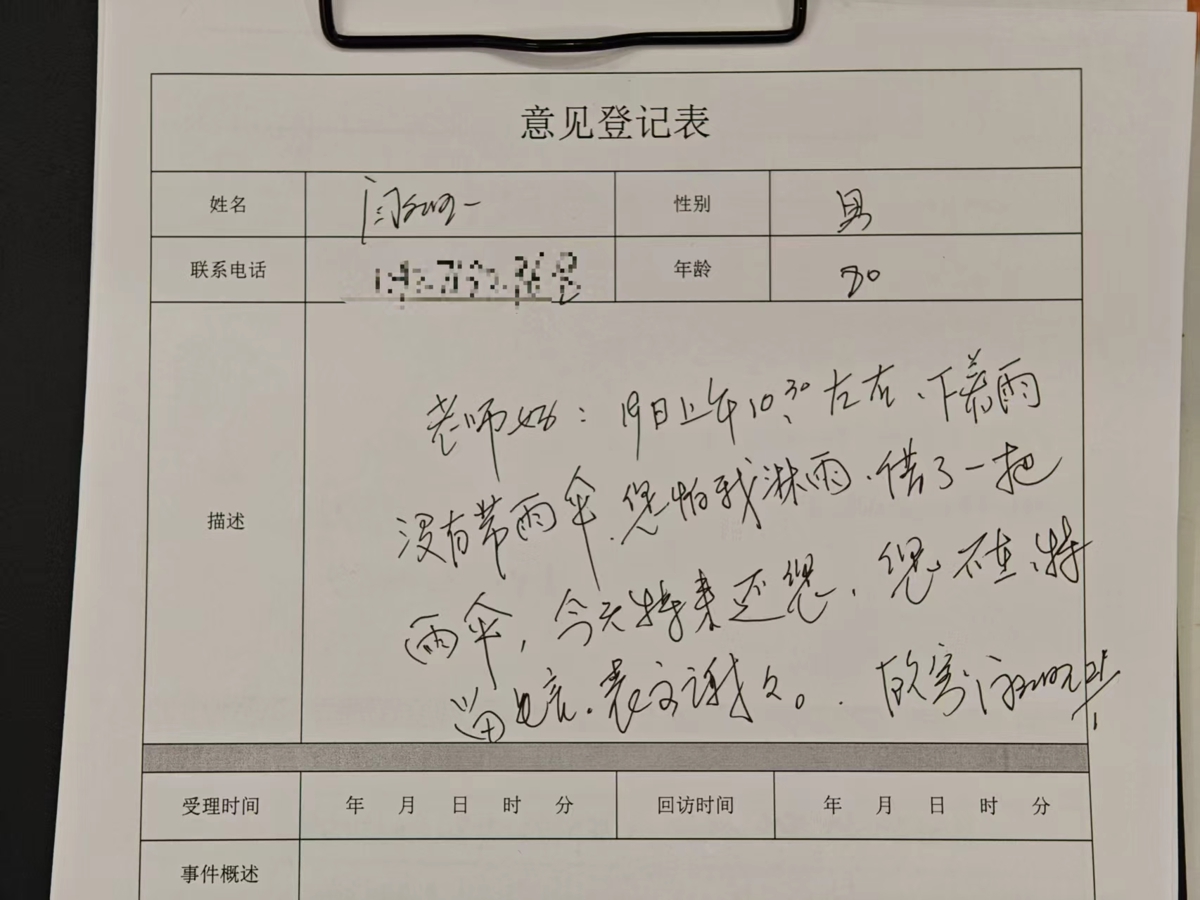 意见登记表
姓名 性别 男
联系电话 年龄 80
描述
老师好：19日上午10:30左右、下着雨
没有带雨伞.您怕我淋雨、借了一把
雨伞，今天特来还您、您不在、特
留言.表示谢意。
受理时间 年 月 日 时 分 回访时间 年 月 日 时 分
事件概述